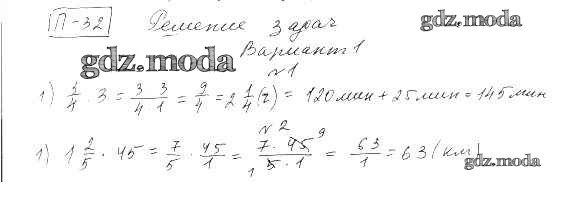 П-32 Решение задач gdz.moda
gdz.moda Вариант 1
№1
1) 3/4 · 3 = 3/4 · 3/1 = 9/4 = 2 1/4 (г) = 120 мин + 25 мин = 145 мин
№2
1) 1 2/5 · 45 = 7/5 · 45/1 = 7 · 45 9 / 1 5 · 1 = 63/1 = 63 (км)
gdz.moda